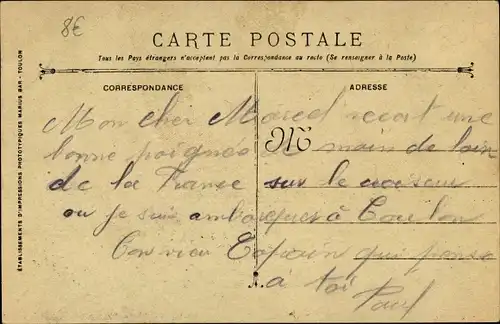 8€
CARTE POSTALE
Tous les Pays étrangers n'acceptent pas la Correspondance au recto (Se renseigner à la Poste)
CORRESPONDANCE
ADRESSE
ÉTABLISSEMENTS D'IMPRESSIONS PHOTOTYPIQUES MARIUS BAR - TOULON
M
Mon cher Marcel recoit une
bonne poignée de main de loin
de la France sur le
ou je suis embarquer à Toulon
Ton vieu Copain qui pense
a toi
Paul